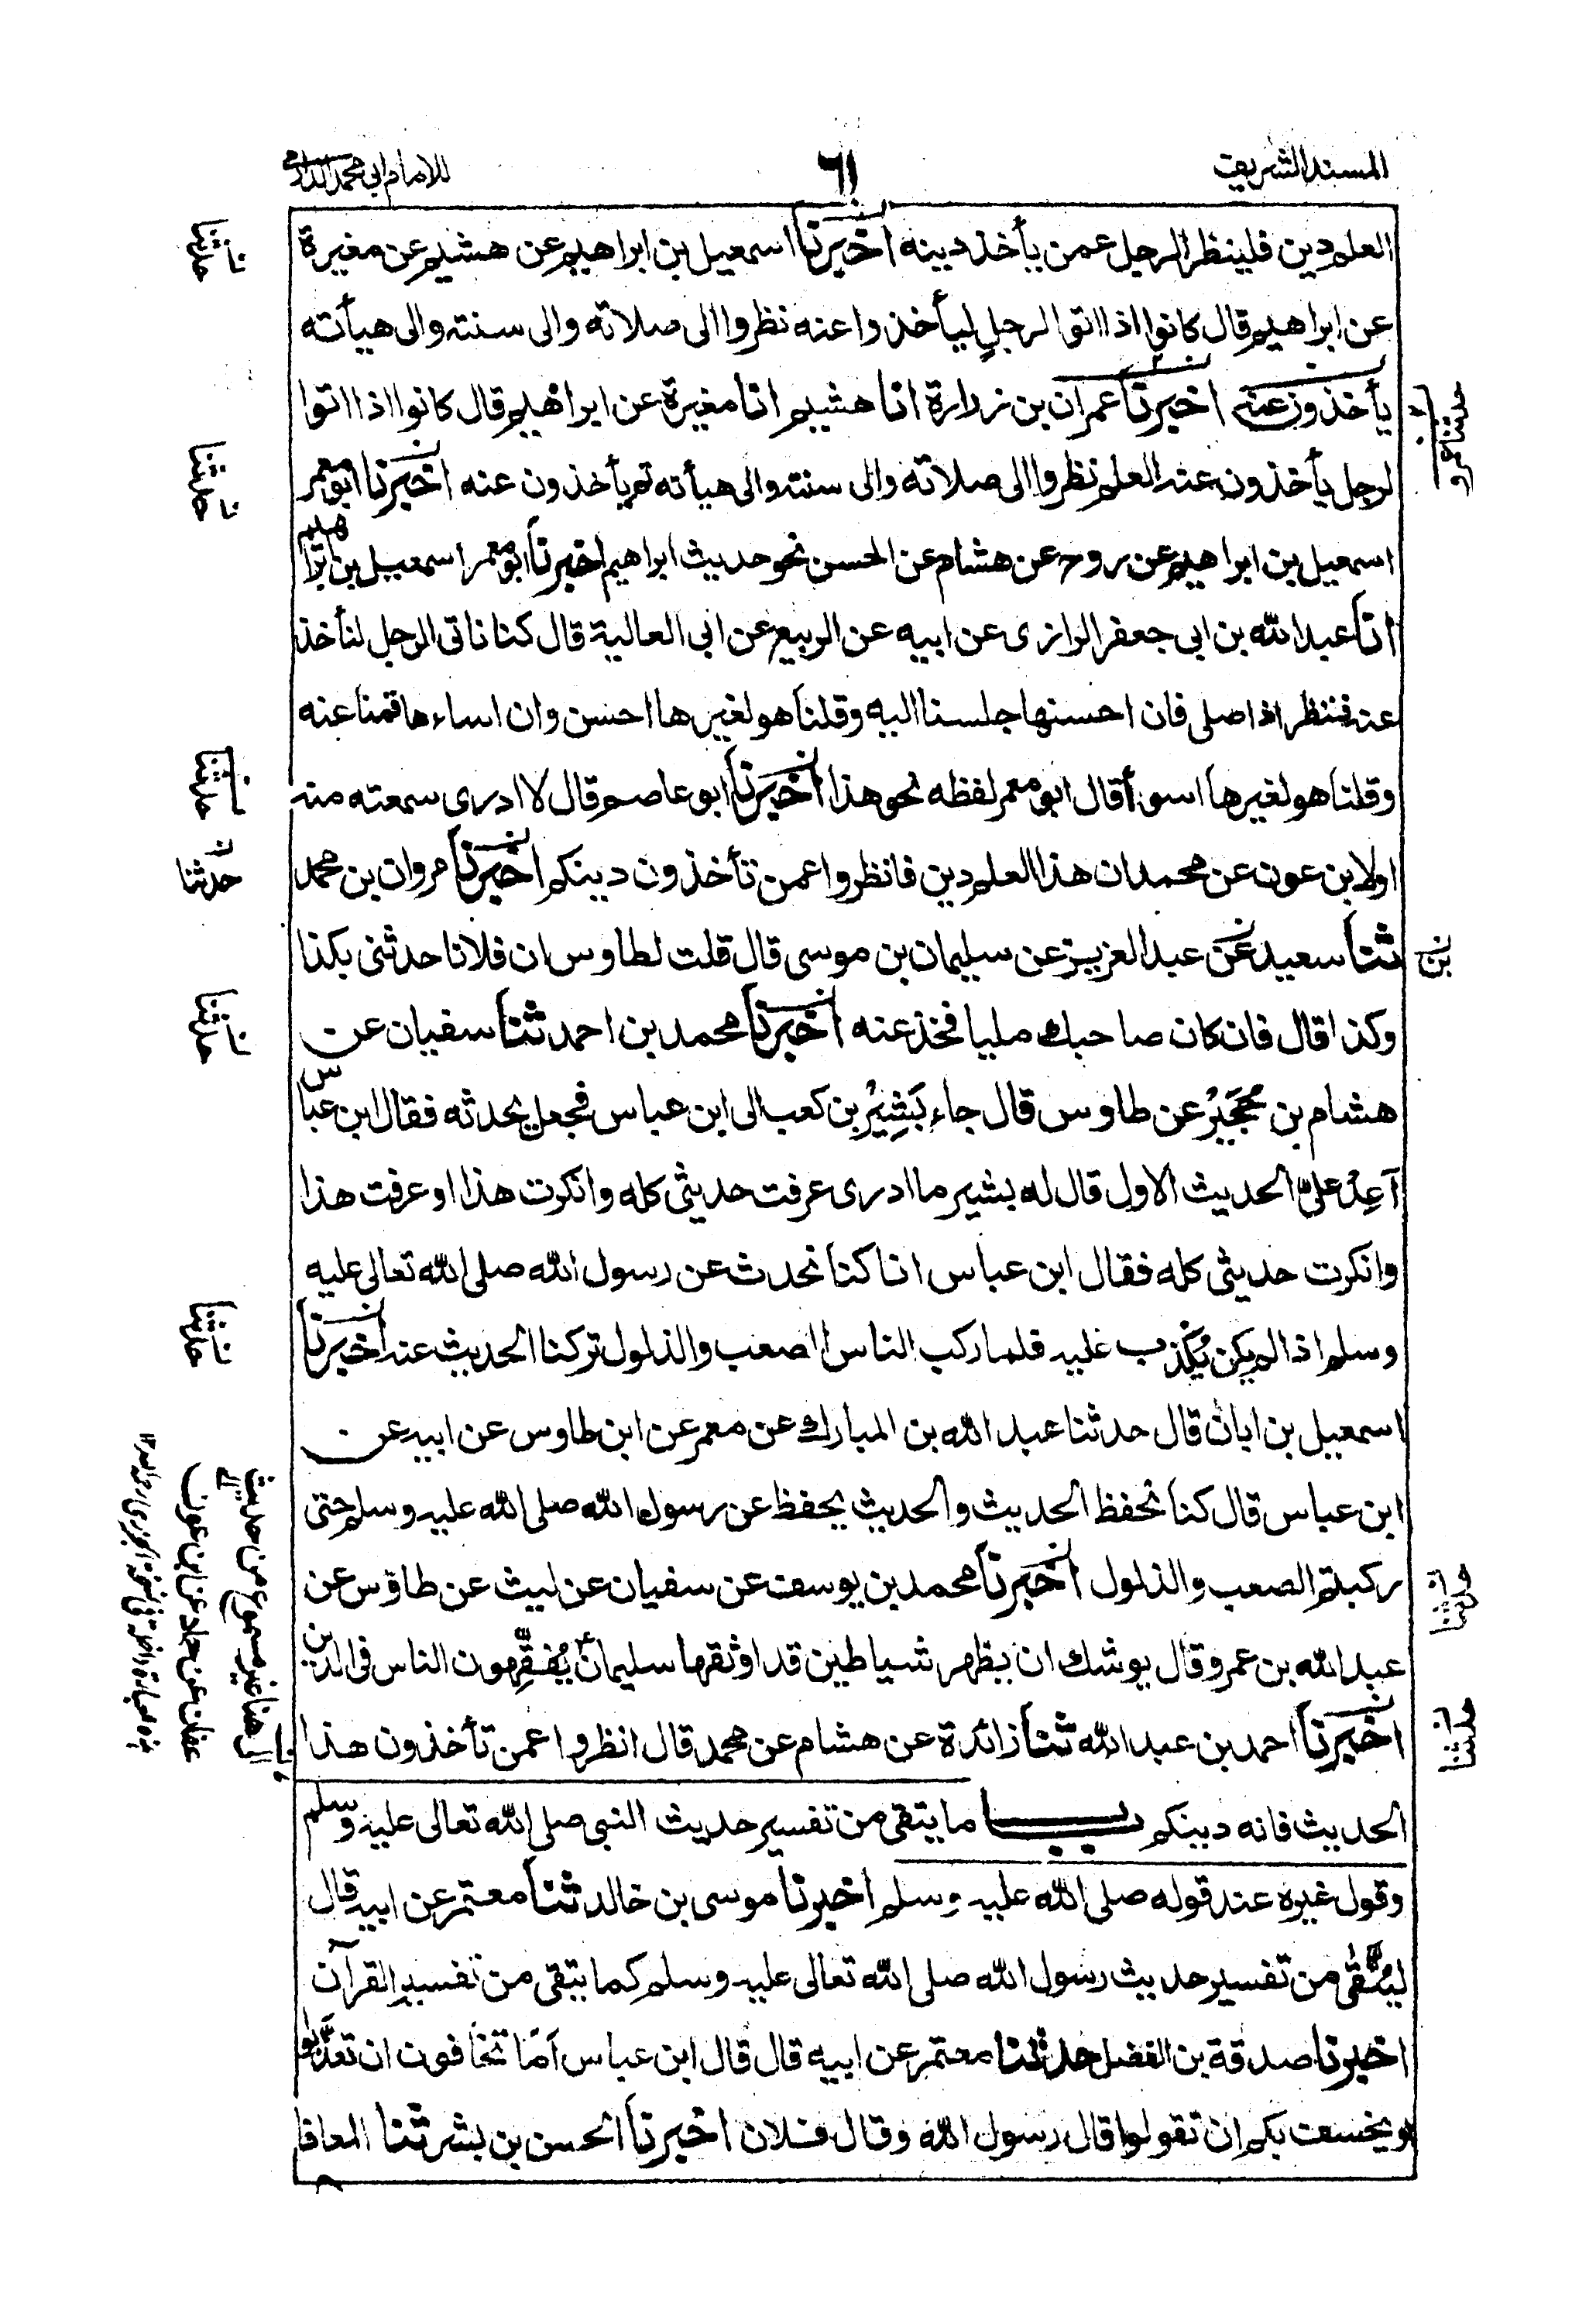 المسند الشريف
٦١
للامام ابی محمد الدارمی
العلم دین فلینظر الرجل عمن یأخذ دینه اخبرنا اسمعیل بن ابراهیم عن هشیم عن مغیرة
عن ابراهیم قال کانوا اذا اتوا الرجل لیأخذوا عنه نظروا الی صلاته والی سنته والی هیأته
یأخذون عنه اخبرنا عمران بن زرارة انا هشیم انا مغیرة عن ابراهیم قال کانوا اذا اتوا
لرجل یأخذون عنه العلم نظروا الی صلاته والی سنته والی هیأته ثم یأخذون عنه اخبرنا ابو معمر
اسمعیل بن ابراهیم عن روح عن هشام عن الحسن نحو حدیث ابراهیم اخبرنا ابو معمر اسمعیل بن ابراهیم
انا عبد الله بن ابی جعفر الرازی عن ابیه عن الربیع عن ابی العالیة قال کنا ناتی الرجل لنأخذ
عنه فننظر اذا صلی فان احسنها جلسنا الیه وقلنا هو لغیرها احسن وان اساءها قمنا عنه
وقلنا هو لغیرها اسوأ قال ابو معمر لفظه نحو هذا اخبرنا ابو عاصم قال لا ادری سمعته منه
اولا بن عون عن محمد ان هذا العلم دین فانظروا عمن تأخذون دینکم اخبرنا مروان بن محمد
ثنا سعید عن عبد العزیز عن سلیمان بن موسی قال قلت لطاوس ان فلانا حدثنی بکذا
وکذا قال فان کان صاحبك ملیا فخذ عنه اخبرنا محمد بن احمد ثنا سفیان عن
هشام بن حُجَیْر عن طاوس قال جاء بَشِیْر بن کعب الی ابن عباس فجعل یحدثه فقال ابن عباس
اَعِدْ علیّ الحدیث الاول قال له بشیر ما ادری عرفت حدیثی کله وانکرت هذا او عرفت هذا
وانکرت حدیثی کله فقال ابن عباس انا کنا نحدث عن رسول الله صلی الله تعالی علیه
وسلم اذ لم یکن یُکْذب علیه فلما رکب الناس الصعب والذلول ترکنا الحدیث عنه اخبرنا
اسمعیل بن ابان قال حدثنا عبد الله بن المبارك عن معمر عن ابن طاوس عن ابیه عن
ابن عباس قال کنا نحفظ الحدیث والحدیث یحفظ عن رسول الله صلی الله علیه وسلم حتی
رکبتم الصعب والذلول اخبرنا محمد بن یوسف عن سفیان عن لیث عن طاؤس عن
عبد الله بن عمرو قال یوشك ان یظهر شیاطین قد اوثقها سلیمان یُفَقِّهون الناس فی الدین
اخبرنا احمد بن عبد الله ثنا زائدة عن هشام عن محمد قال انظروا عمن تأخذون هذا
الحدیث فانه دینکم باب ما یتقی من تفسیر حدیث النبی صلی الله تعالی علیه وسلم
وقول غیره عند قوله صلی الله علیه وسلم اخبرنا موسی بن خالد ثنا معتمر عن ابیه قال
لیُتَّقٰی من تفسیر حدیث رسول الله صلی الله تعالی علیه وسلم کما یتقی من تفسیر القرآن
اخبرنا صدقة بن الفضل حدثنا معتمر عن ابیه قال قال ابن عباس اَمَا تخافون ان تعذَّبوا
او یخسف بکم ان تقولوا قال رسول الله وقال فلان اخبرنا الحسن بن بشر ثنا المعافا
حدثنا
حدثنا
حدثنا
حدثنا
حدثنا
حدثنا
بن
حدثنا
حدثنا
الی هنا غیر مسموع من حدیث
عفان عن حماد عن ابن عون